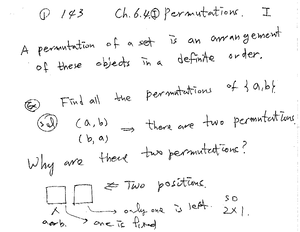 ① 143 Ch. 6.4① Permutations. I
A permutation of a set is an arrangement
of these objects in a definite order.
Ex Find all the permutations of {a,b}
Sol (a, b)
(b, a) ⇒ there are two permutations
Why are there two permutations?
⇐ Two positions.
→ only one is left. so
a or b. → one is fixed 2×1.